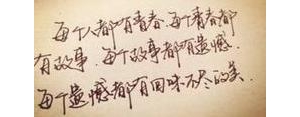 每个人都有青春.每个青春都
有故事.每个故事都有遗憾.
每个遗憾都有回味不尽的美.